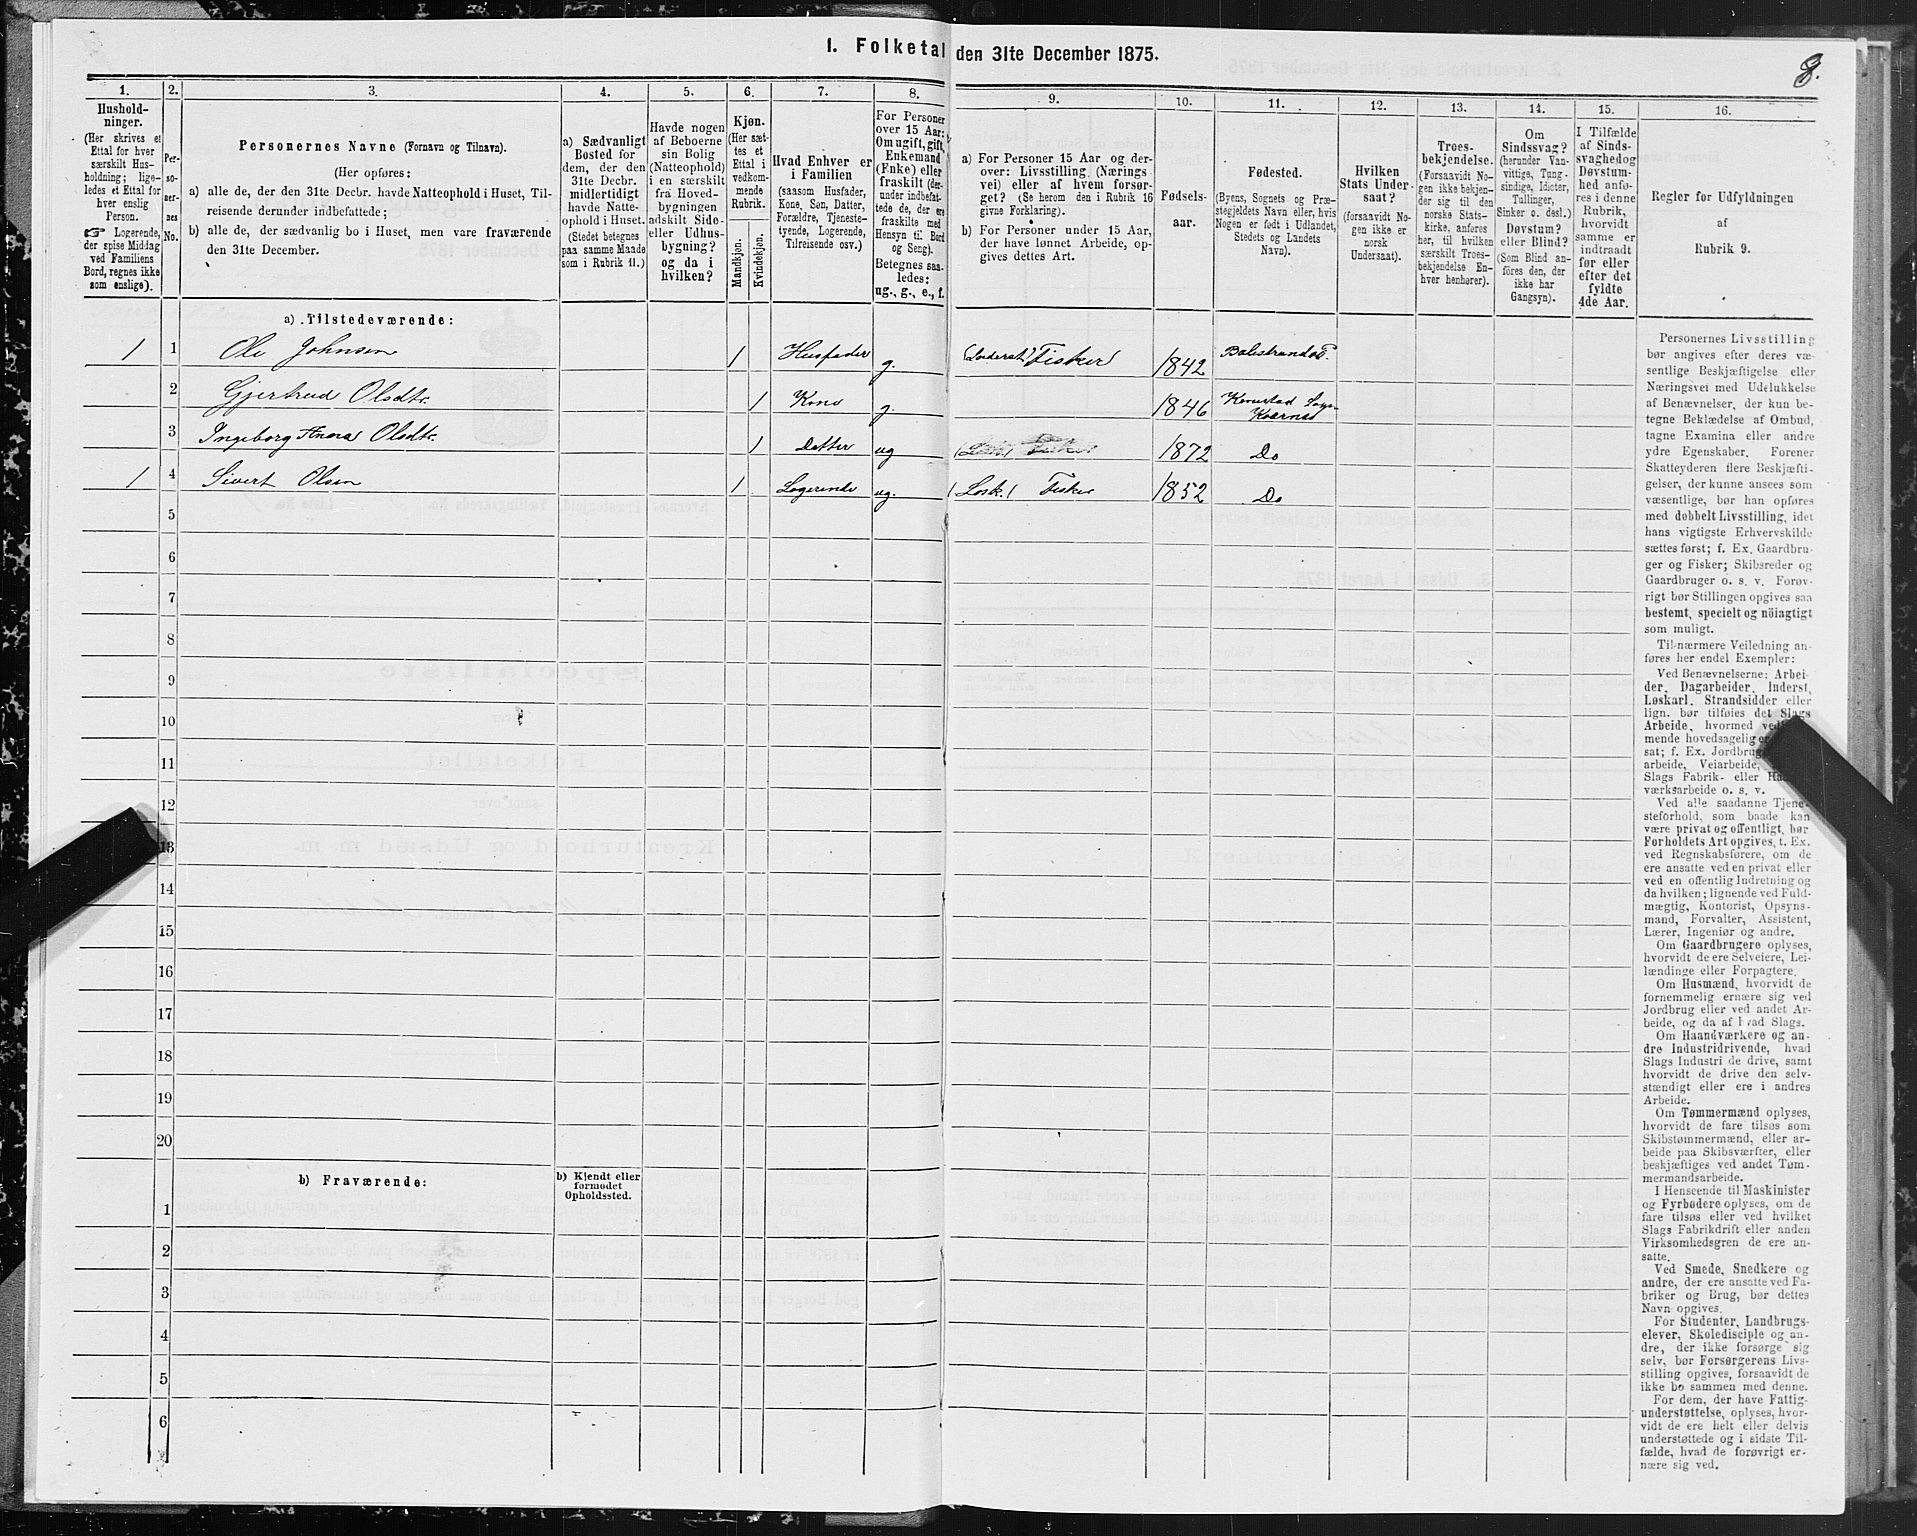 1. Folketal den 31te December 1875.
8.
1.
2.
3.
4.
5.
6.
7.
8.
9.
10.
11.
12.
13.
14.
15.
16.
Hushold-
ninger.
(Her skrives et
Ettal for hver
særskilt Hus-
holdning; lige-
ledes et Ettal for
hver enslig
Person.
☞ Logerende,
der spise Middag
ved Familiens
Bord, regnes ikke
som enslige).
Per-
so-
ner-
nes
No.
Personernes Navne (Fornavn og Tilnavn).
(Her opføres:
a) alle de, der den 31te Decbr. havde Natteophold i Huset, Til-
reisende derunder indbefattede;
b) alle de, der sædvanlig bo i Huset, men vare fraværende
den 31te December.
a) Sædvanligt
Bosted for
dem, der den
31te Decbr.
midlertidigt
havde Natte-
ophold i Huset.
(Stedet betegnes
paa samme Maade
som i Rubrik 11.)
Havde nogen
af Beboerne
sin Bolig
(Natteophold)
i en særskilt
fra Hoved-
bygningen
adskilt Side-
eller Udhus-
bygning?
og da i
hvilken?
Kjøn.
(Her sæt-
tes et
Ettal i
vedkom-
mende
Rubrik.
Mandkjøn.
Kvindekjøn.
Hvad Enhver er
i Familien
(saasom Husfader,
Kone, Søn, Datter,
Forældre, Tjeneste-
tyende, Logerende,
Tilreisende osv.)
For Personer
over 15 Aar:
Om ugift, gift,
Enkemand
(Enke) eller
fraskilt (der-
under indbefat-
tede de, der ere
fraskilte med
Hensyn til Bord
og Seng).
Betegnes saa-
ledes:
ug., g., e., f.
a) For Personer 15 Aar og der-
over: Livsstilling (Nærings
vei) eller af hvem forsør-
get? (Se herom den i Rubrik 16
givne Forklaring).
b) For Personer under 15 Aar,
der have lønnet Arbeide, op-
gives dettes Art.
Fødsels-
aar.
Fødested.
(Byens, Sognets og Præ-
stegjeldets Navn eller, hvis
Nogen er født i Udlandet,
Stedets og Landets
Navn).
Hvilken
Stats Under-
saat?
(forsaavidt No-
gen ikke er
norsk
Undersaat).
Troes-
bekjendelse.
(Forsaavidt No-
gen ikke bekjen-
der sig til den
norske Stats-
kirke, anføres
her, til hvilken
særskilt Troes-
bekjendelse En-
hver henhører).
Om
Sindssvag?
(herunder Van-
vittige, Tung-
sindige, Idioter,
Tullinger,
Sinker o. desl.)
Døvstum?
eller Blind?
(Som Blind an-
føres den, der
ikke har
Gangsyn).
I Tilfælde
af Sinds-
svaghed og
Døvstum-
hed anfø-
res i denne
Rubrik,
hvorvidt
samme er
indtraadt
før eller
efter det
fyldte
4de Aar.
Regler for Udfyldningen
af
Rubrik 9.
a) Tilstedeværende:
1 1 Ole Johnsen 1 Husfader g. Fisker 1842
2 Gjertrud Olsdtr. 1 Kone g. 1846
3 Ingeborg Anna Olsdtr. 1 Datter ug 1872 Do
1 4 Sivert Olsen 1 Logerende ug. (Løsk.) Fisker 1852 Do
5
6
7
8
9
10
11
12
13
14
15
16
17
18
19
20
b) Fraværende:
b) Kjendt eller
formodet
Opholdssted.
1
2
3
4
5
6
Personernes Livsstilling
bør angives efter deres væ-
sentlige Beskjæftigelse eller
Næringsvei med Udelukkelse
af Benævnelser, der kun be-
tegne Beklædelse af Ombud,
tagne Examina eller andre
ydre Egenskaber. Forener
Skatteyderen flere Beskjæfti-
gelser, der kunne ansees som
væsentlige, bør han opføres
med dobbelt Livsstilling, idet
hans vigtigste Erhvervskilde
sættes først; f. Ex. Gaardbru-
ger og Fisker; Skibsreder og
Gaardbruger o. s. v. Forøv-
rigt bør Stillingen opgives saa
bestemt, specielt og nöiagtigt
som muligt.
Til nærmere Veiledning an-
føres her endel Exempler:
Ved Benævnelserne: Arbei-
der, Dagarbeider, Inderst,
Løskarl, Strandsidder eller
lign. bør tilføies det Slags
Arbeide, hvormed ved-
mende hovedsagelig er
sat; f. Ex. Jordbrug
arbeide, Veiarbeide,
Slags Fabrik- eller Ha
værksarbeide o. s. v.
Ved alle saadanne Tjene-
steforhold, som baade kan
være privat og offentligt, bør
Forholdets Art opgives, t. Ex.
ved Regnskabsførere, om de
ere ansatte ved en privat eller
ved en offentlig Indretning og
da hvilken; lignende ved Fuld-
mægtig, Kontorist, Opsyns-
mand, Forvalter, Assistent,
Lærer, Ingeniør og andre.
Om Gaardbrugere oplyses,
hvorvidt de ere Selveiere, Lei-
lændinge eller Forpagtere.
Om Husmænd, hvorvidt de
fornemmelig ernære sig ved
Jordbrug eller ved andet Ar-
beide, og da af hvad Slags.
Om Haandværkere og an-
dre Industridrivende, hvad
Slags Industri de drive, samt
hvorvidt de drive den selv-
stændigt eller ere i andres
Arbeide.
Om Tømmermænd oplyses,
hvorvidt de fare tilsøs som
Skibstømmermænd, eller ar-
beide paa Skibsværfter, eller
beskjæftiges ved andet Tøm-
mermandsarbeide.
I Henseende til Maskinister
og Fyrbødere oplyses, om de
fare tilsøs eller ved hvilket
Slags Fabrikdrift eller anden
Virksomhedsgren de ere an-
satte.
Ved Smede, Snedkere og
andre, der ere ansatte ved Fa-
briker og Brug, bør dettes
Navn opgives.
For Studenter, Landbrugs-
elever, Skoledisciple og an-
dre, der ikke forsørge sig
selv, bør Forsørgerens Livs-
stilling opgives, forsaavidt de
ikke bo sammen med denne.
For dem, der have Fattig-
understøttelse, oplyses, hvor-
vidt de ere helt eller delvis
understøttede og i sidste Til-
fælde, hvad de forøvrigt er-
nære sig ved.